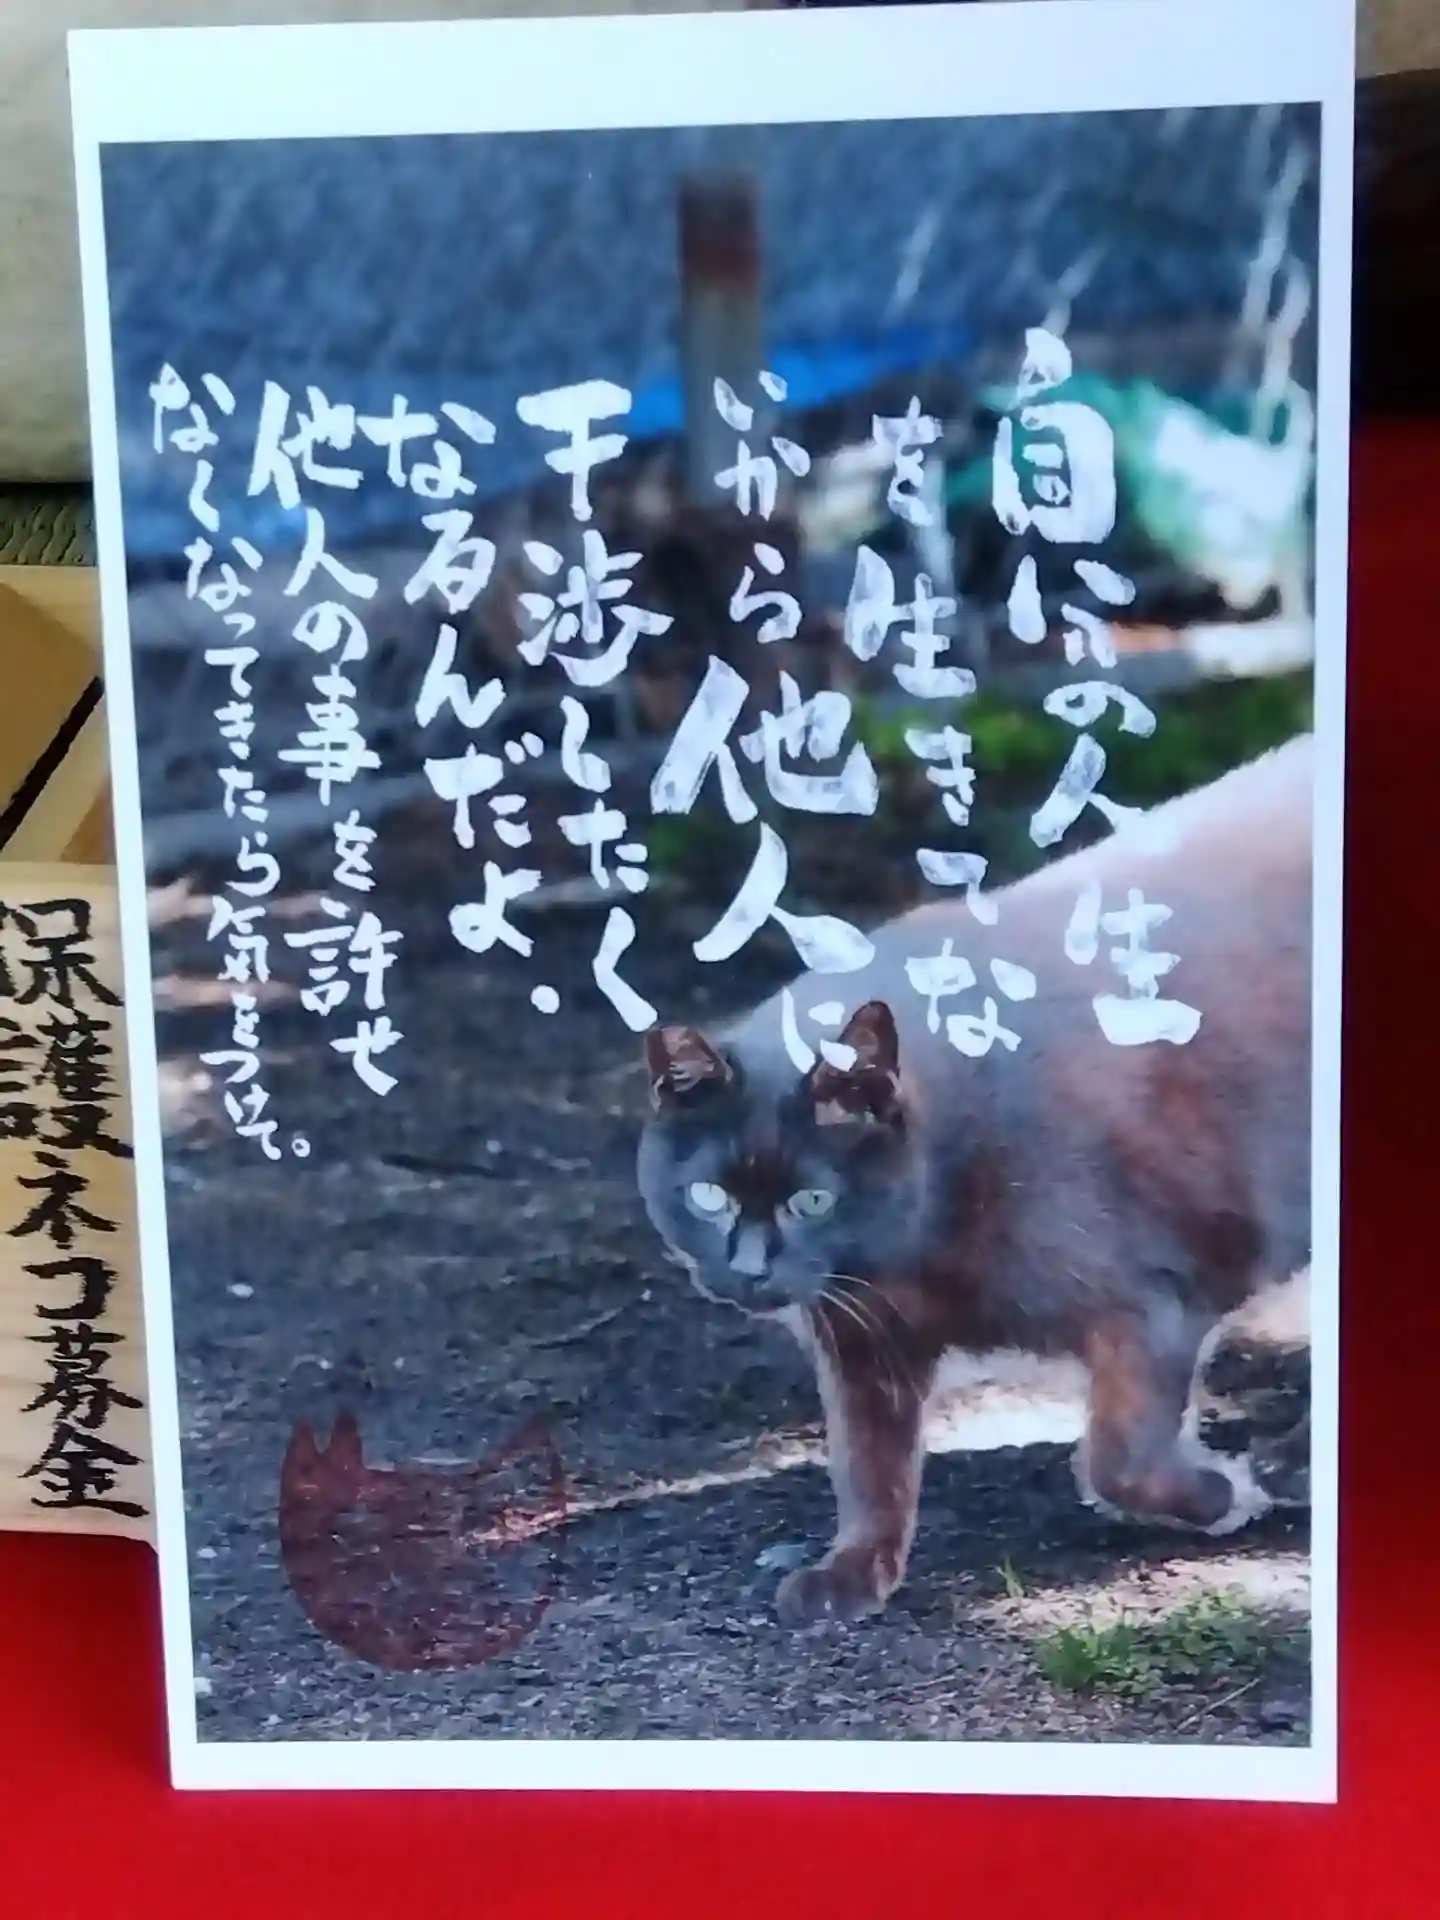 自分の人生
を生きてな
いから他人に
干渉したく
なるんだよ.
他人の事を許せ
なくなってきたら気をつけて。
保護ネコ募金